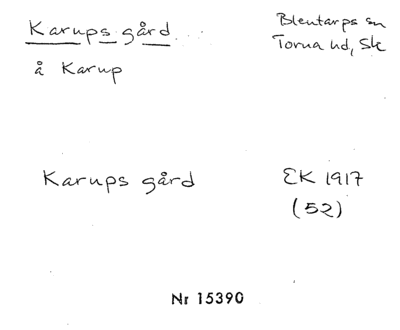 Karups gård
Blentarps sn
Torna hd, Sk
å Karup
Karups gård
EK 1917
(52)
Nr 15390